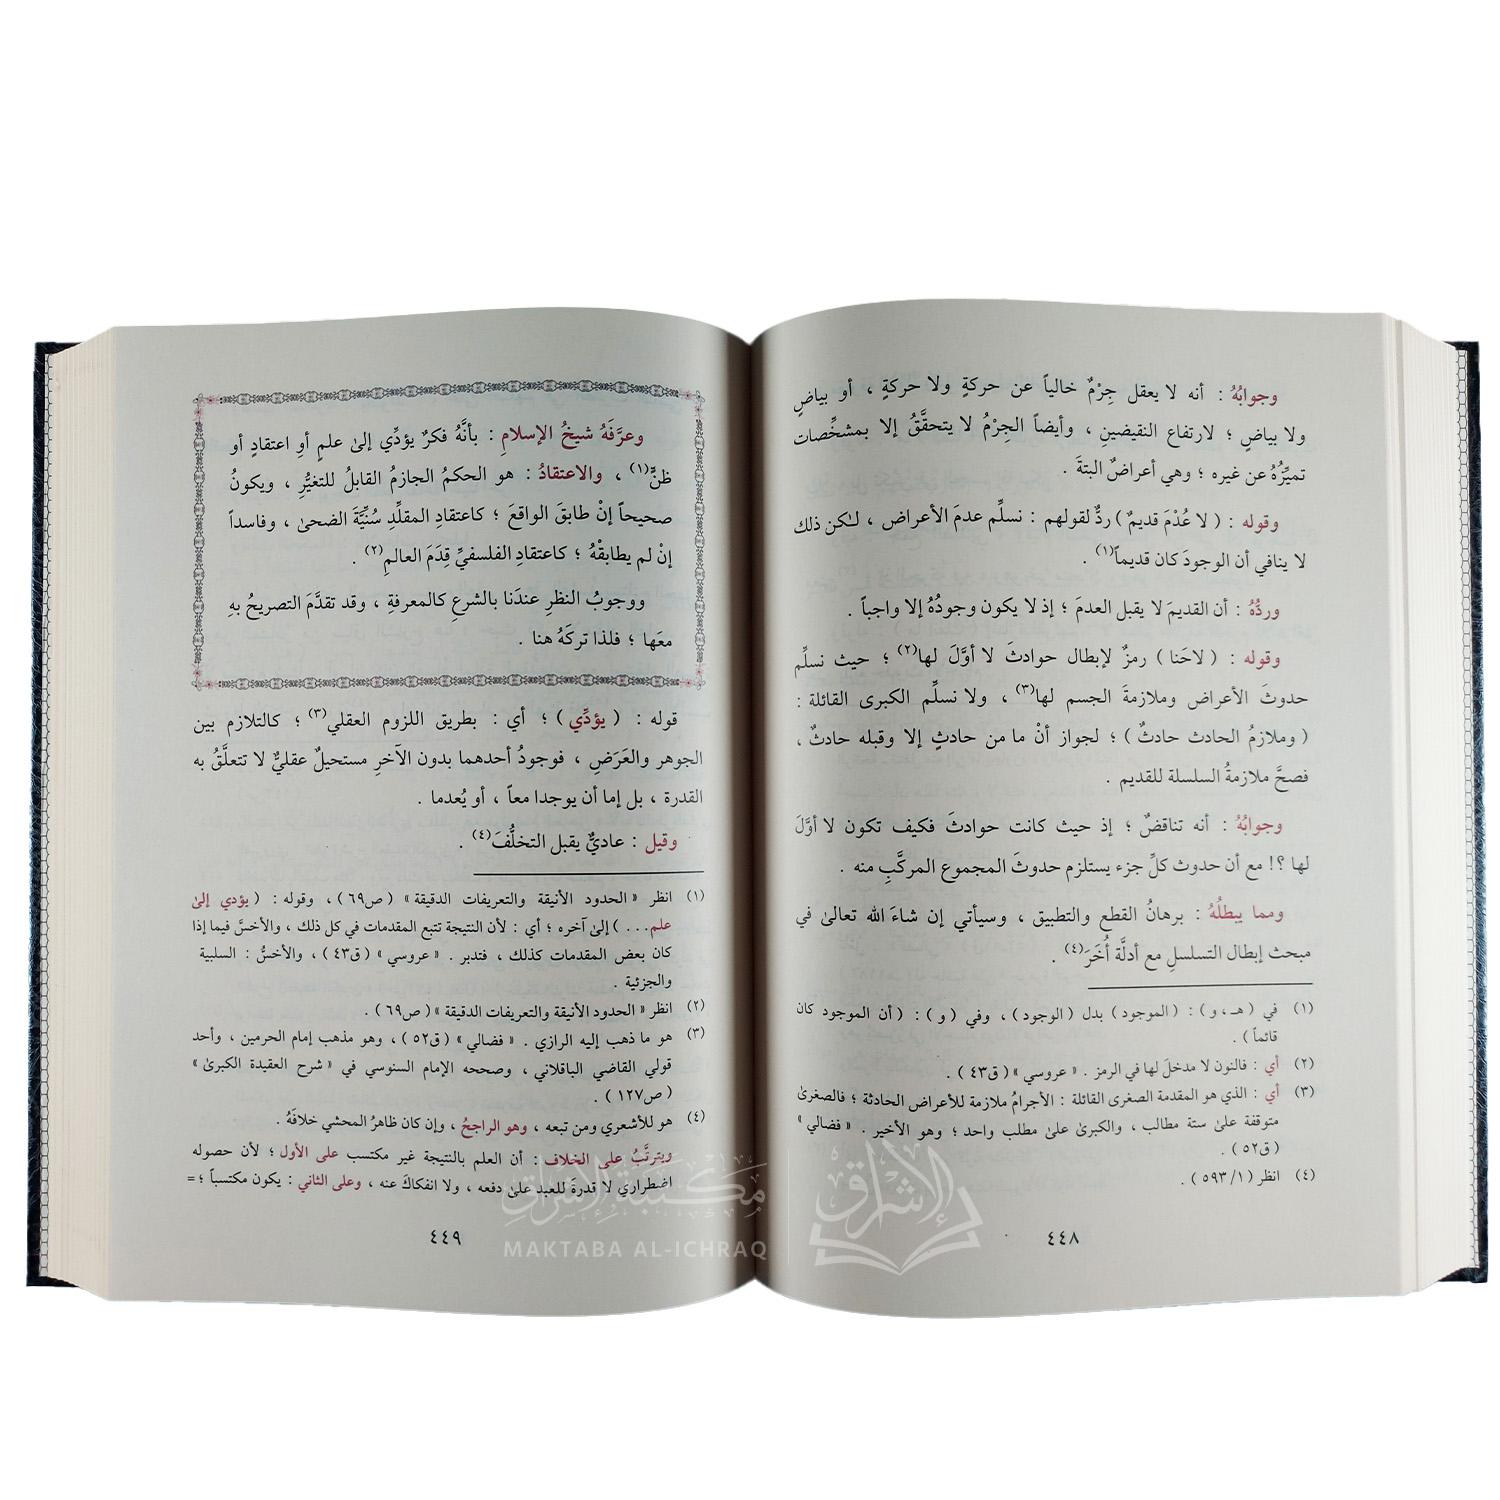 وجوابُهُ : أنه لا يعقل جِرْمٌ خالياً عن حركةٍ ولا حركةٍ ، أو بياضٍ
ولا بياضٍ ؛ لارتفاع النقيضينِ ، وأيضاً الجِرْمُ لا يتحقَّقُ إلا بمشخِّصات
تميِّزُهُ عن غيره ؛ وهي أعراضٌ البتةَ .
وقوله : ( لا عُدْمَ قديمٌ ) ردٌّ لقولهم : نسلِّم عدمَ الأعراض ، لـٰكن ذلك
لا ينافي أن الوجودَ كان قديماً(١) .
وردُّهُ : أن القديمَ لا يقبل العدمَ ؛ إذ لا يكون وجودُهُ إلا واجباً .
وقوله : ( لاحَنا ) رمزٌ لإبطال حوادثَ لا أوَّلَ لها(٢) ؛ حيث نسلِّم
حدوثَ الأعراض وملازمةَ الجسم لها(٣) ، ولا نسلِّم الكبرى القائلة :
( وملازمُ الحادث حادثٌ ) ؛ لجواز أنْ ما من حادثٍ إلا وقبله حادثٌ ،
فصحَّ ملازمةُ السلسلة للقديم .
وجوابُهُ : أنه تناقضٌ ؛ إذ حيث كانت حوادثَ فكيف تكون لا أوَّلَ
لها ؟! مع أن حدوث كلِّ جزء يستلزم حدوثَ المجموع المركَّبِ منه .
ومما يبطلُهُ : برهانُ القطع والتطبيق ، وسيأتي إن شاءَ الله تعالىٰ في
مبحث إبطال التسلسلِ مع أدلَّة أُخَرَ(٤) .
(١) في ( هـ ، و ) : ( الموجود ) بدل ( الوجود ) ، وفي ( و ) : ( أن الموجود كان
قائماً ) .
(٢) أي : فالنون لا مدخلَ لها في الرمز . « عروسي » ( ق٤٣ ) .
(٣) أي : الذي هو المقدمة الصغرى القائلة : الأجرامُ ملازمة للأعراض الحادثة ؛ فالصغرىٰ
متوقفة علىٰ ستة مطالب ، والكبرىٰ علىٰ مطلب واحد ؛ وهو الأخير . « فضالي »
( ق٥٢ ) .
(٤) انظر ( ١/ ٥٩٣ ) .
٤٤٨
وعرَّفَهُ شيخُ الإسلامِ : بأنَّهُ فكرٌ يؤدِّي إلىٰ علمٍ أوِ اعتقادٍ أو
ظنٍّ(١) ، والاعتقادُ : هو الحكمُ الجازمُ القابلُ للتغيُّرِ ، ويكونُ
صحيحاً إنْ طابقَ الواقعَ ؛ كاعتقادِ المقلِّدِ سُنِّيَّةَ الضحىٰ ، وفاسداً
إنْ لم يطابقْهُ ؛ كاعتقادِ الفلسفيِّ قِدَمَ العالمِ(٢) .
ووجوبُ النظرِ عندَنا بالشرعِ كالمعرفةِ ، وقد تقدَّمَ التصريحُ بهِ
معَها ؛ فلذا تركَهُ هنا .
قوله : ( يؤدِّي ) ؛ أي : بطريق اللزوم العقلي(٣) ؛ كالتلازم بين
الجوهر والعَرَضِ ، فوجودُ أحدهما بدون الآخرِ مستحيلٌ عقليٌّ لا تتعلَّقُ به
القدرة ، بل إما أن يوجدا معاً ، أو يُعدما .
وقيل : عاديٌّ يقبل التخلُّفَ(٤) .
(١) انظر « الحدود الأنيقة والتعريفات الدقيقة » ( ص٦٩ ) ، وقوله : ( يؤدي إلىٰ
علم... ) إلىٰ آخره ؛ أي : لأن النتيجة تتبع المقدمات في كل ذلك ، والأخسَّ فيما إذا
كان بعض المقدمات كذلك ، فتدبر . « عروسي » ( ق٤٣ ) ، والأخسُّ : السلبية
والجزئية .
(٢) انظر « الحدود الأنيقة والتعريفات الدقيقة » ( ص٦٩ ) .
(٣) هو ما ذهب إليه الرازي . « فضالي » ( ق٥٢ ) ، وهو مذهب إمام الحرمين ، وأحد
قولي القاضي الباقلاني ، وصححه الإمام السنوسي في « شرح العقيدة الكبرىٰ »
( ص١٢٧ ) .
(٤) هو للأشعري ومن تبعه ، وهو الراجحُ ، وإن كان ظاهرُ المحشي خلافَهُ .
ويترتَّبُ على الخلاف : أن العلم بالنتيجة غير مكتسب على الأول ؛ لأن حصوله
اضطراري لا قدرةَ للعبد علىٰ دفعه ، ولا انفكاكَ عنه ، وعلى الثاني : يكون مكتسباً ؛=
٤٤٩
مكتبة الإشراق
MAKTABA AL-ICHRAQ
الإشراق